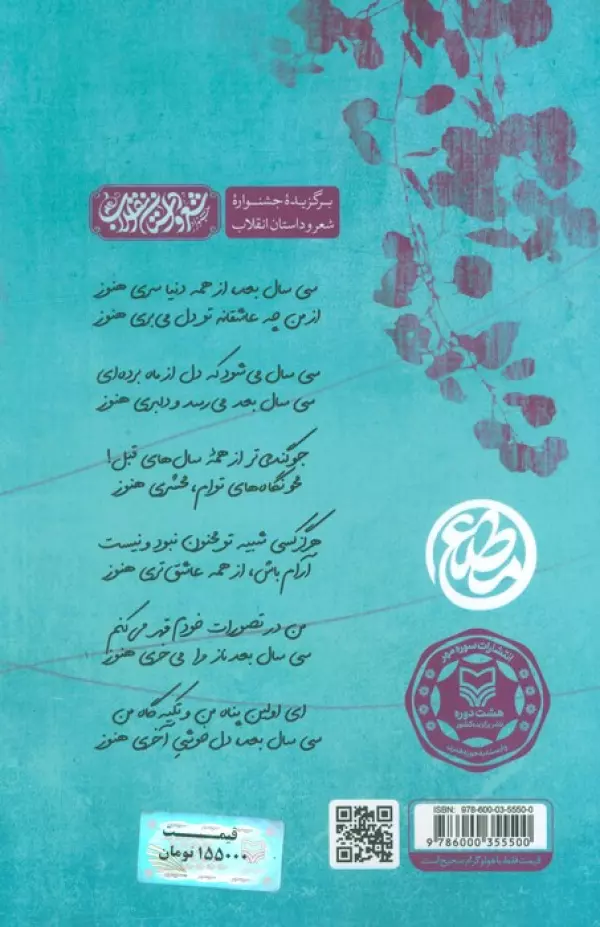 برگزیدهٔ جشنوارهٔ
شعر و داستان انقلاب
سی سال بعد از همه دنیا سری هنوز
از من چه عاشقانه تو دل می‌بری هنوز
سی سال می‌شود که دل از ماه برده‌ای
سی سال بعد می‌رسد و دلبری هنوز
جوگندمی‌تر از همهٔ سال‌های قبل!
محو نگاه‌های توام، محشری هنوز
هرگز کسی شبیه تو مجنون نبود و نیست
آرام باش، از همه عاشق‌تری هنوز
من در تصورات خودم قهر می‌کنم
سی سال بعد ناز مرا می‌خری هنوز
ای اولین پناه من و تکیه‌گاه من
سی سال بعد، دل‌خوشیِ آخری هنوز
انتشارات سوره مهر
هشت دوره
ناشر برگزیده کشور
قیمت
۱۵۵۰۰۰ تومان
ISBN: 978-600-03-5550-0
9 786000 355500
قیمت فقط با هولوگرام صحیح است